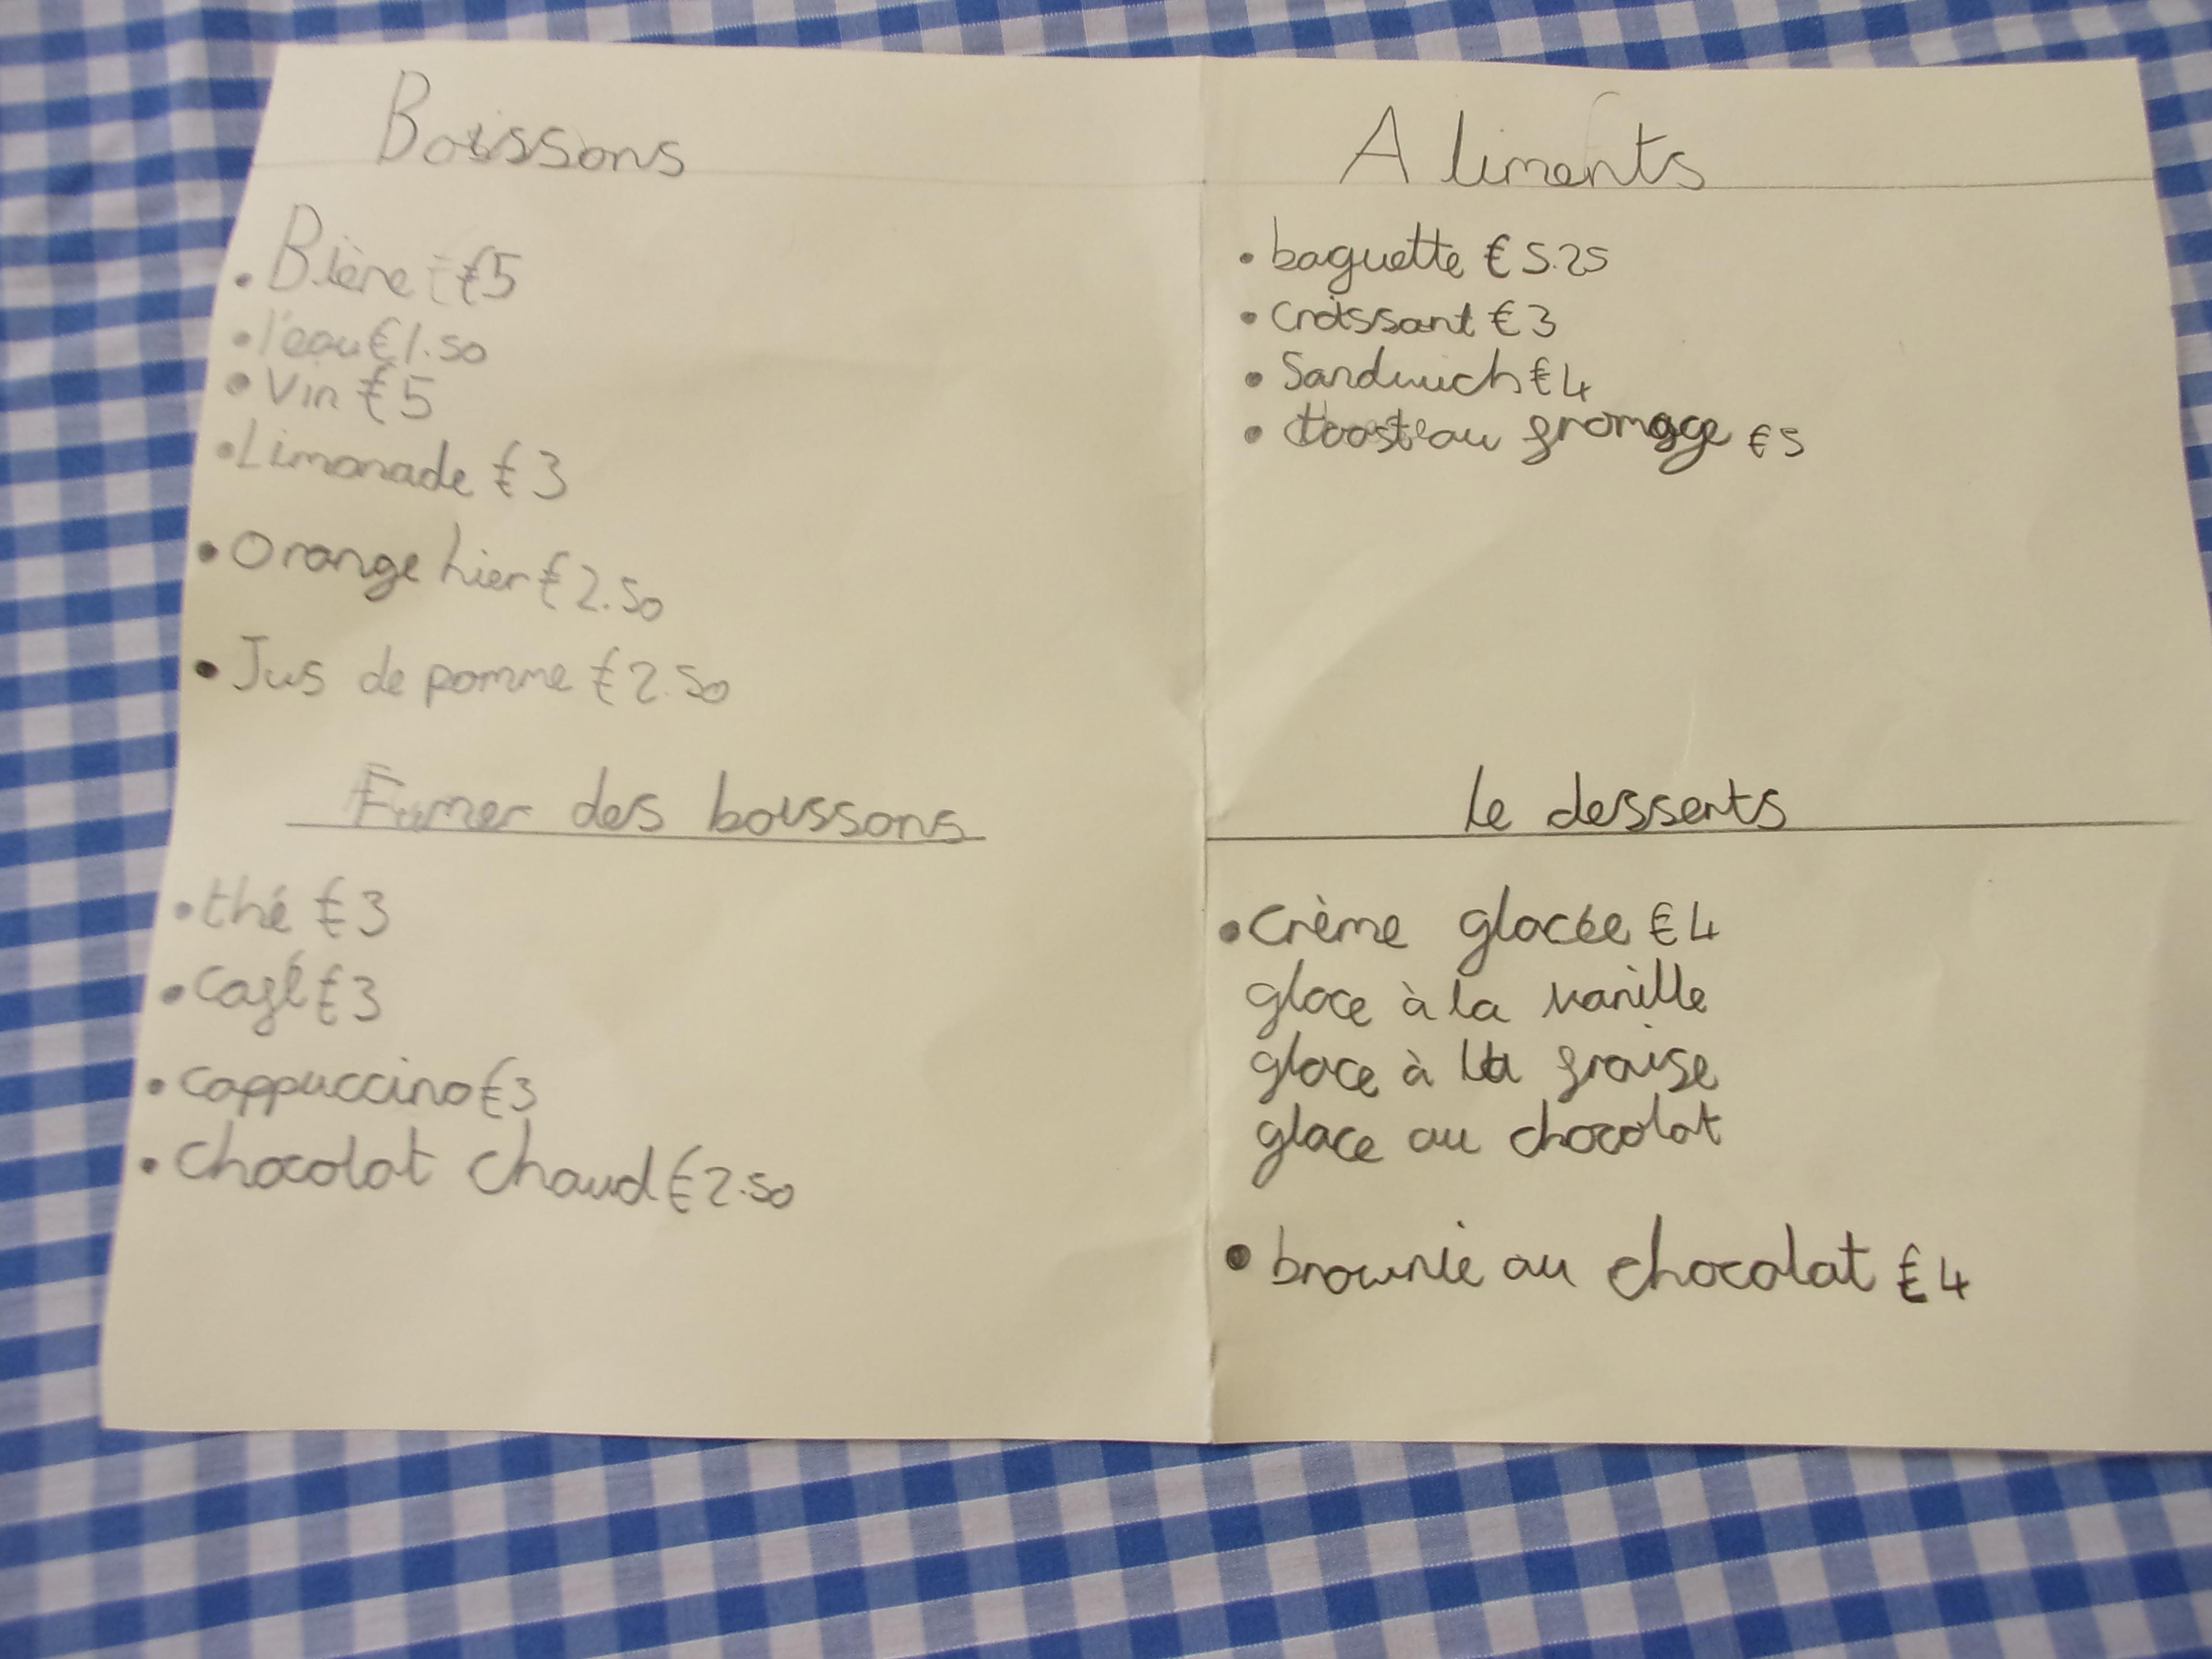 Boissons
• Bière €5
• l'eau €1.50
• Vin €5
• Limonade €3
• Orange hier €2.50
• Jus de pomme €2.50
Fumer des boissons
• thé €3
• café €3
• cappuccino €3
• chocolat chaud €2.50
Aliments
• baguette €5.25
• croissant €3
• Sandwich €4
• toast au fromage €5
le desserts
• crème glacée €4
glace à la vanille
glace à la fraise
glace au chocolat
• brownie au chocolat €4